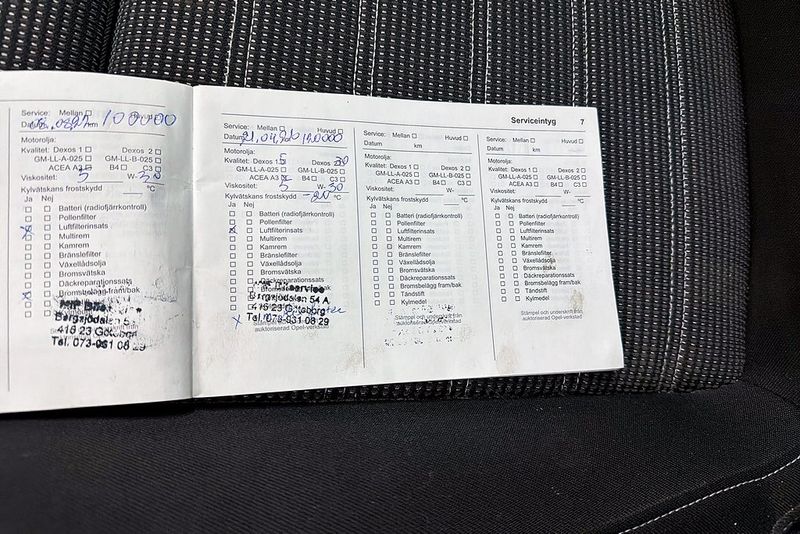 Service: Mellan
100000
km
Motorolja:
Kvalitet: Dexos 1 Dexos 2
GM-LL-A-025 GM-LL-B-025
ACEA A3 B4 C3
Viskositet: 5 W- 30
Kylvätskans frostskydd °C
Ja Nej
Batteri (radiofjärrkontroll)
Pollenfilter
x Luftfilterinsats
Multirem
Kamrem
Bränslefilter
Växellådsolja
Bromsvätska
Däckreparationssats
x Bromsbelägg fram/bak
MP
Bergsjödalen 5
415 23 Göteborg
Tel. 073-981 08 29
Serviceintyg 7
Service: Mellan Huvud
Datum 21,04
Motorolja:
Kvalitet: Dexos 1 5 Dexos 30
GM-LL-A-025 GM-LL-B-025
ACEA A3 B4 C3
Viskositet: 5 W- 30
Kylvätskans frostskydd °C
Ja Nej
Batteri (radiofjärrkontroll)
Pollenfilter
x Luftfilterinsats
Multirem
Kamrem
Bränslefilter
Växellådsolja
Bromsvätska
Däckreparationssats
Bromsbelägg fram/bak
service
Bergsjödalen 54 A
415 23 Göteborg
x Tel. 073-981 08 29
Stämpel och underskrift från
auktoriserad Opel-verkstad
Service: Mellan Huvud
Datum km
Motorolja:
Kvalitet: Dexos 1 Dexos 2
GM-LL-A-025 GM-LL-B-025
ACEA A3 B4 C3
Viskositet: W-
Kylvätskans frostskydd °C
Ja Nej
Batteri (radiofjärrkontroll)
Pollenfilter
Luftfilterinsats
Multirem
Kamrem
Bränslefilter
Växellådsolja
Bromsvätska
Däckreparationssats
Bromsbelägg fram/bak
Tändstift
Kylmedel
Stämpel och underskrift från
auktoriserad Opel-verkstad
Service: Mellan Huvud
Datum km
Motorolja:
Kvalitet: Dexos 1 Dexos 2
GM-LL-A-025 GM-LL-B-025
ACEA A3 B4 C3
Viskositet: W-
Kylvätskans frostskydd °C
Ja Nej
Batteri (radiofjärrkontroll)
Pollenfilter
Luftfilterinsats
Multirem
Kamrem
Bränslefilter
Växellådsolja
Bromsvätska
Däckreparationssats
Bromsbelägg fram/bak
Tändstift
Kylmedel
Stämpel och underskrift från
auktoriserad Opel-verkstad